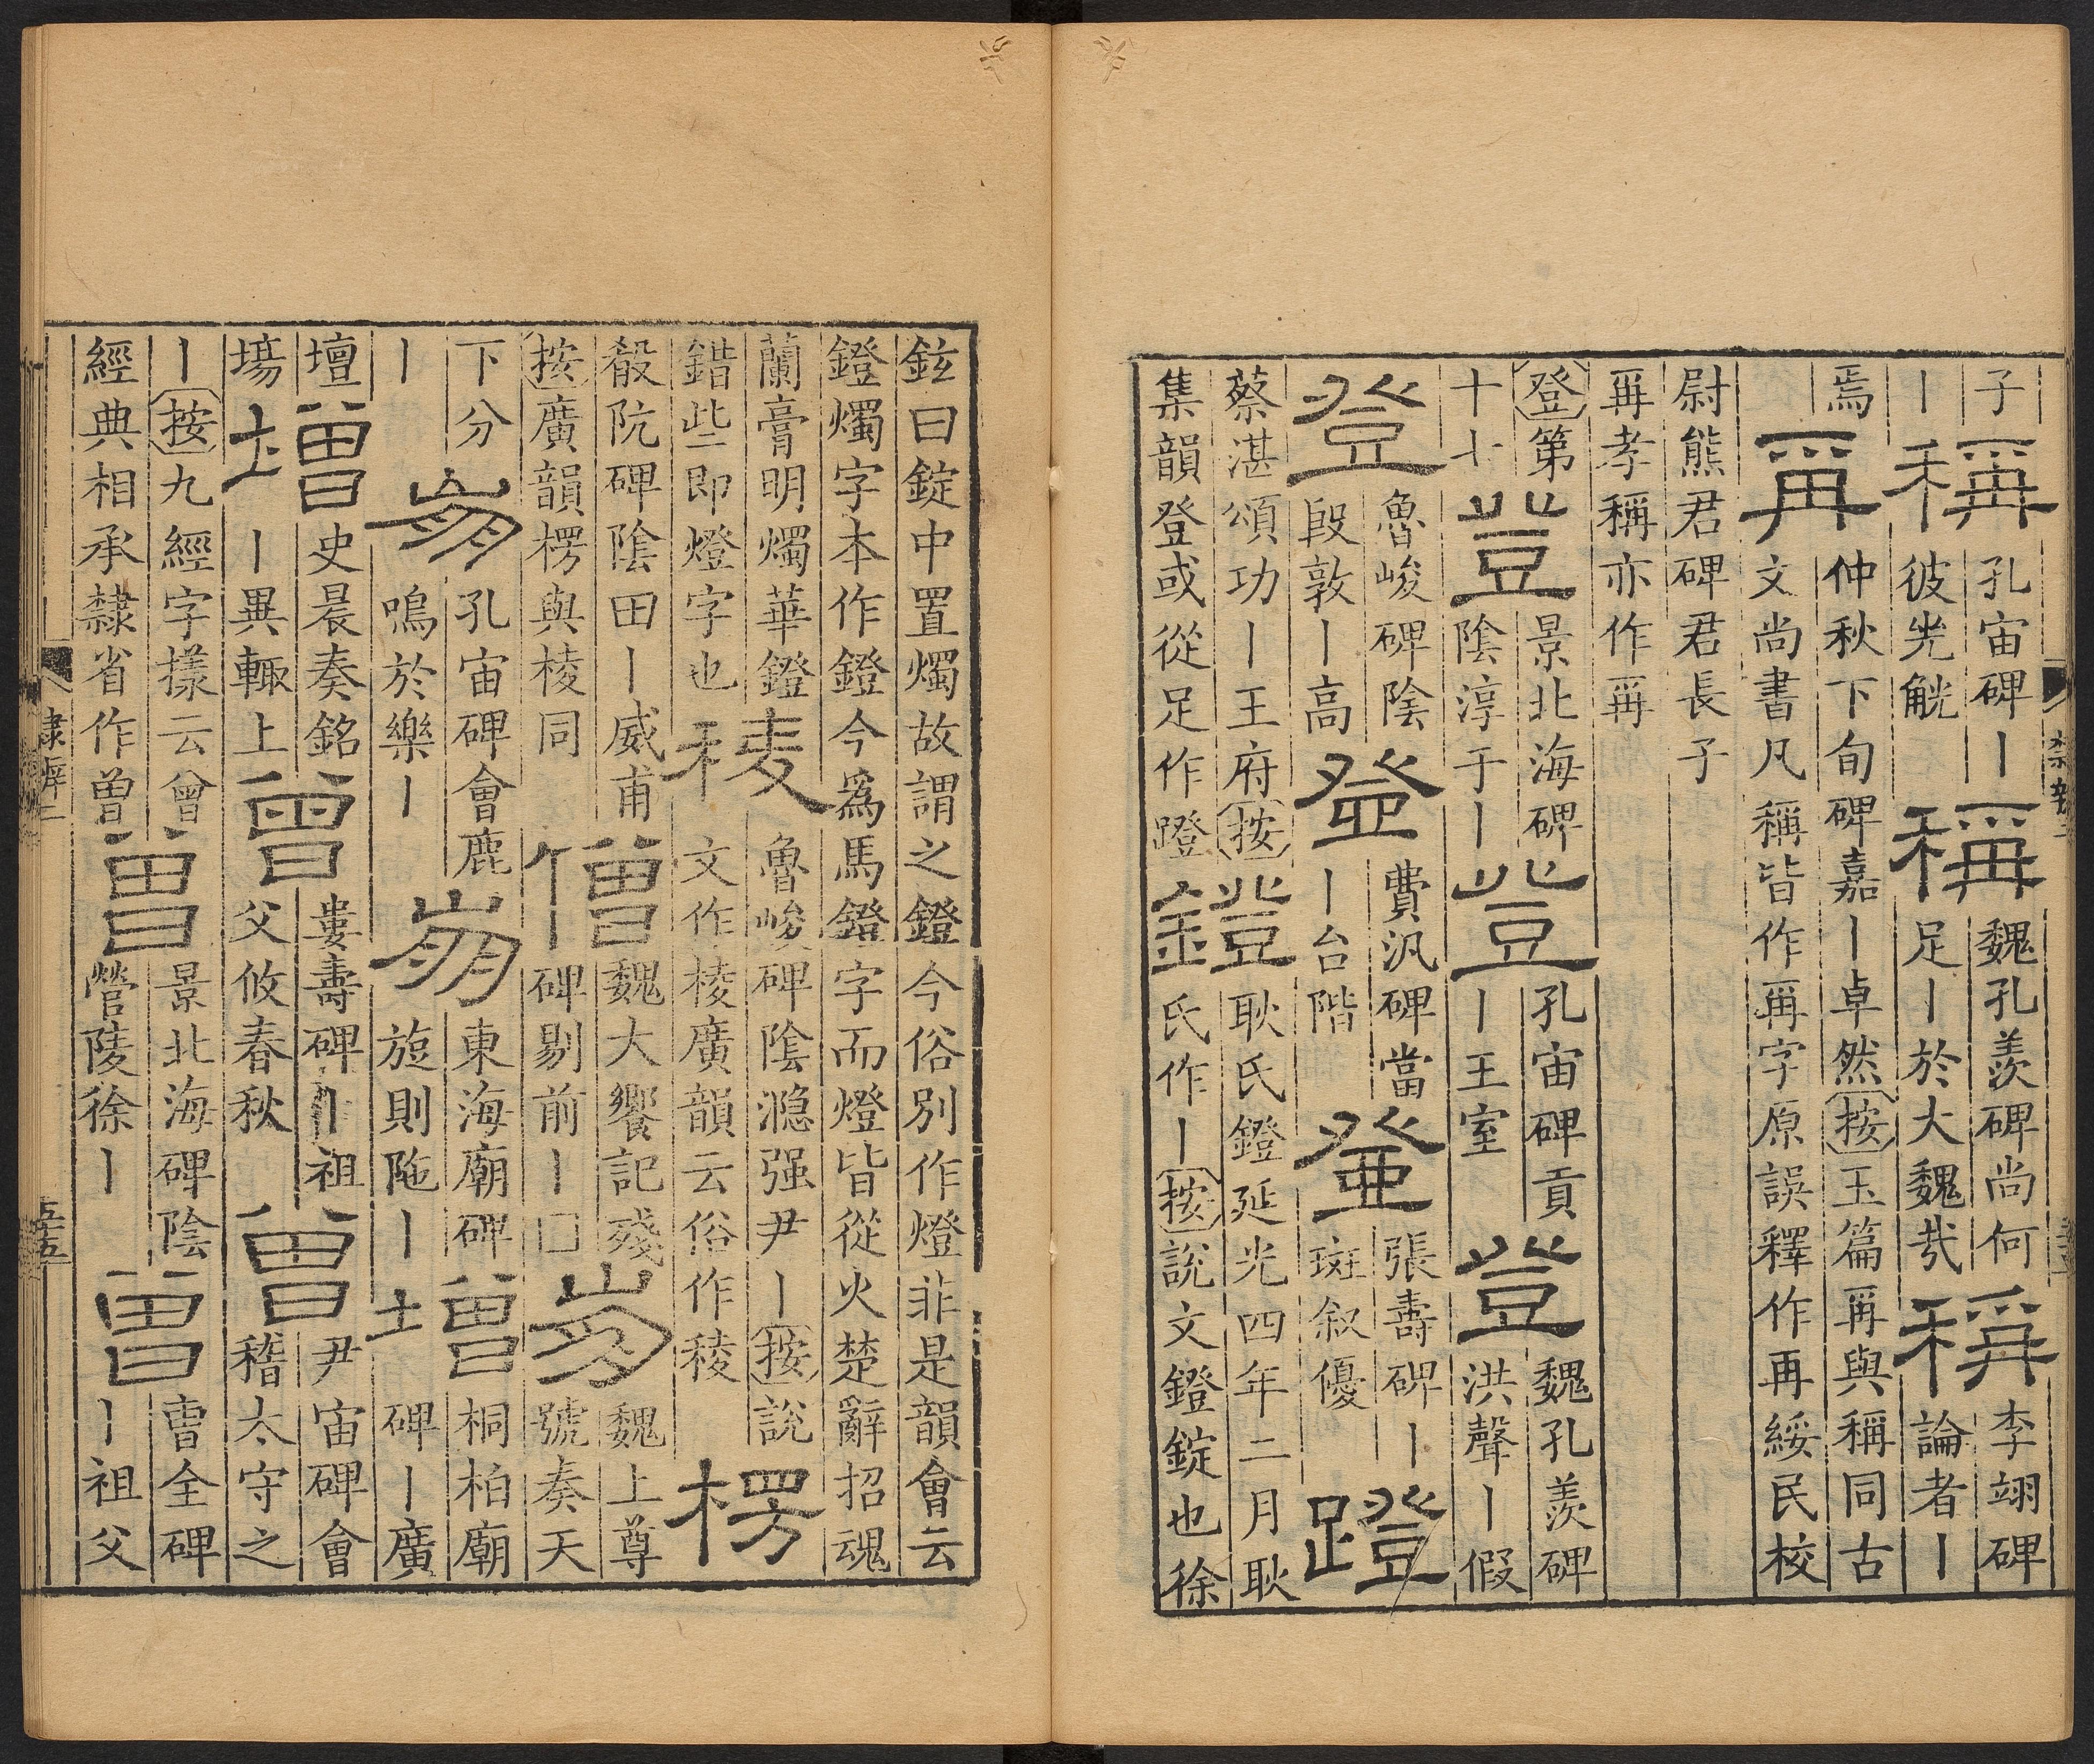 子丨稱孔宙碑丨彼兕觥稱魏孔羨碑尚何足丨於大魏㢤稱李翊碑論者丨
焉爯仲秋下旬碑嘉丨卓然按玉篇爯與稱同古文尚書凡稱皆作爯字原誤釋作再綏民校
尉熊君碑君長子爯孝稱亦作爯
登第十七豋景北海碑陰淳于丨豋孔宙碑貢丨王室豋魏孔羨碑洪聲丨假
登魯峻碑陰段敦丨高登費汎碑當丨台階登張壽碑丨斑叙優蹬
蔡湛頌功丨王府按集韻登或從足作蹬鐙耿氏鐙延光四年二月耿氏作丨按說文鐙錠也徐
鉉曰錠中置燭故謂之鐙今俗別作燈非是韻會云鐙燭字本作鐙今爲馬鐙字而燈皆從火楚辭招魂
蘭膏明燭華鐙錯些即燈字也稜魯峻碑陰㶏强尹丨按說文作棱廣韻云俗作稜楞
殽阬碑陰田丨威甫按廣韻楞與棱同僧魏大饗記殘碑剔前丨囗崩魏上尊號奏天
下分丨崩孔宙碑會鹿鳴於樂丨崩東海廟碑旋則陁丨增桐柏廟碑丨廣
壇場增史晨奏銘丨異輙上曾婁壽碑丨祖父攸春秋曾尹宙碑會稽太守之
丨按九經字㨾云曾經典相承隸省作曽曾景北海碑陰營陵徐丨曾曹全碑丨祖父
隸辨二
五十五